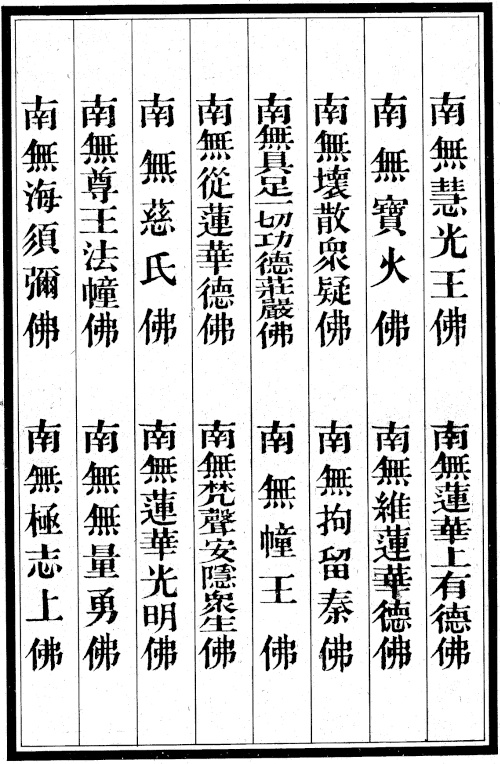 南無慧光王佛　南無蓮華上有德佛
南無寶火佛　南無維蓮華德佛
南無壞散眾疑佛　南無拘留秦佛
南無具足一切功德莊嚴佛　南無幢王佛
南無從蓮華德佛　南無梵聲安隱眾生佛
南無慈氏佛　南無蓮華光明佛
南無尊王法幢佛　南無無量勇佛
南無海須彌佛　南無極志上佛